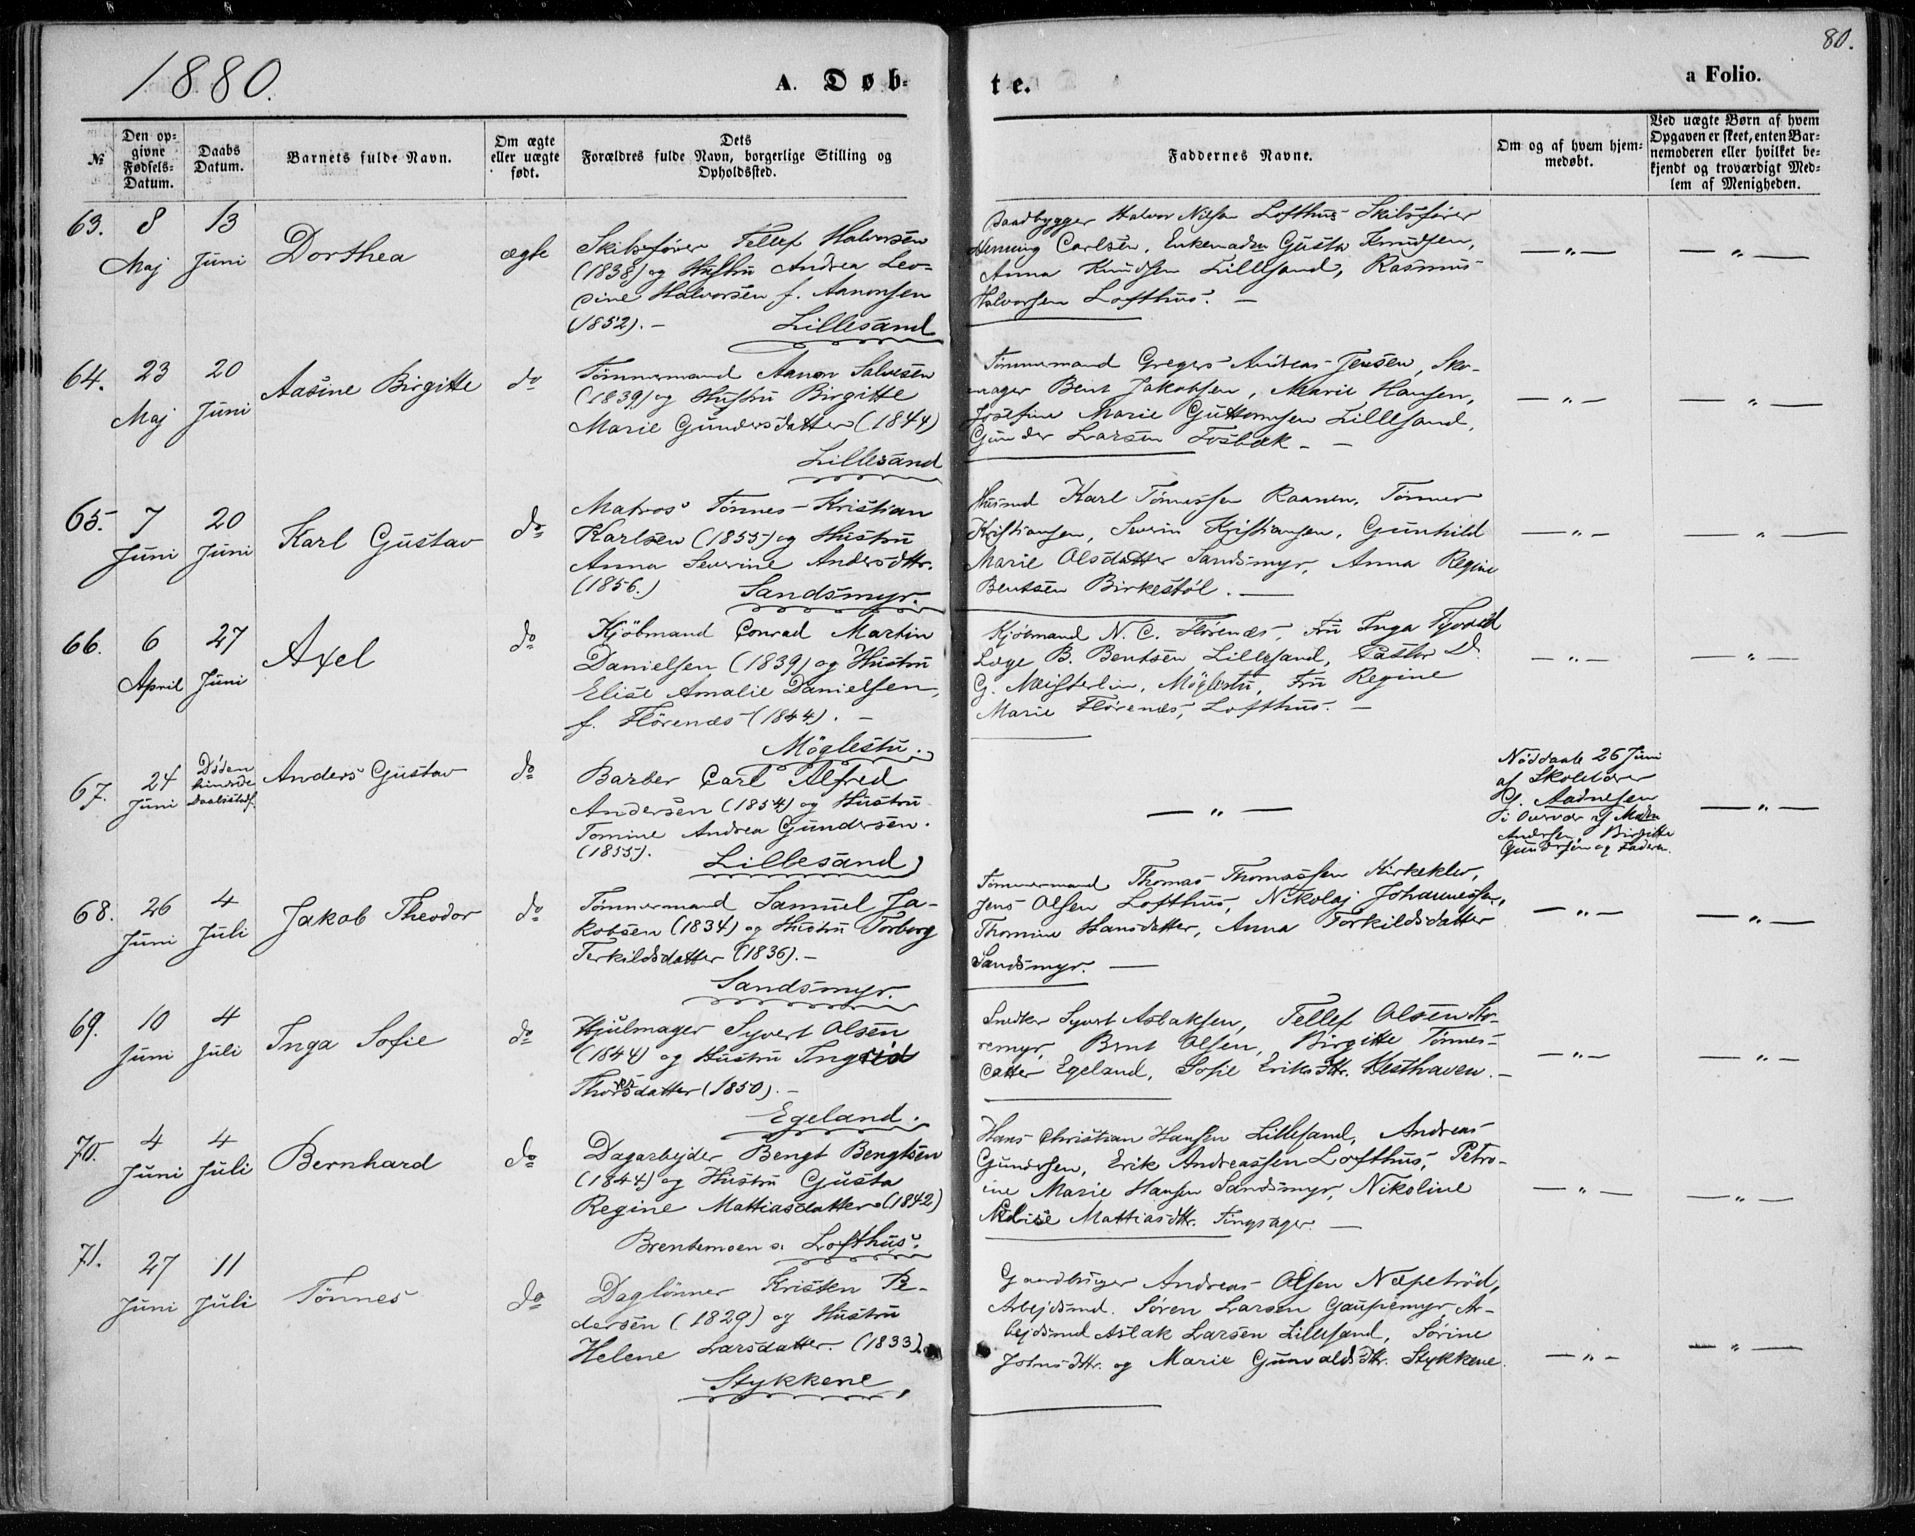 1880.
A. Døb-
te.
80.
a Folio.
№
Den op-
givne
Fødsels-
Datum.
Daabs
Datum.
Barnets fulde Navn.
Om ægte
eller uægte
født.
Dets
Forældres fulde Navn, borgerlige Stilling og
Opholdssted.
Faddernes Navne.
Om og af hvem hjem-
medøbt.
Ved uægte Børn af hvem
Opgaven er skeet, enten Bar-
nemoderen eller hvilket be-
kjendt og troværdigt Med-
lem af Menigheden.
63. 8 Maj
13 Juni
Dorthea
ægte
Skibsfører Tellef Halvorsen
(1838) og Hustru Andrea Leo-
sine Halvorsen f. Aanonsen
(1852). -
Lillesand
Baadbygger Halvor Nilsen Lofthus Skibsfører
Henning Carlsen, Enkemadm Gusta Knudsen,
Anna Knudsen Lillesand, Rasmus
Halvorsen Lofthus. -
— „ —
— „ —
64. 23 Maj
20 Juni
Aasine Birgitte
do
Tømmermand Aanon Salvesen
(1839) og Hustru Birgitte
Marie Gundersdatter (1844)
Lillesand
Tømmermand Gregers Andreas Jensen, Sko-
mager Bent Jakobsen, Marie Hansen,
Josefine Marie Guttormsen Lillesand,
Gunder Larsen Fosbæk - -
— „ —
— „ —
65. 7 Juni
20 Juni
Karl Gustav
do
Matros Tønnes Kristian
Karlsen (1855) og Hustru
Anna Severine Andersdttr.
(1856.)
Sandsmyr.
Husmd Karl Tønnessen Raanen, Tønner
Kristiansen, Severin Kristiansen, Gunhild
Marie Olsdatter Sandsmyr, Anna Regine
Bentsen Birkestøl. —
— „ —
— „ —
66. 6 April
27 Juni
Axel
do
Kjøbmand Conrad Martin
Danielsen (1839) og Hustru
Elise Amalie Danielsen,
f. Flörenæs (1844). -
Møglestu.
Kjøbmand N. C. Flörenæs, Fru Inga
Læge B. Bentsen Lillesand, Pastor D.
G. Meisterlin, Møglestu, Fru Regine
Marie Flörenæs, Lofthus. -
— „ —
— „ —
67. 24 Juni
Døden
hindrede
Daabsstadf.
Anders Gustav
do
Barber Carl Alfred
Andersen (1854) og Hustru
Tomine Andrea Gundersen.
(1855).
Lillesand
— „ —
Nøddaab 26 Juni
af Skolelærer
G. Aadnesen
i Overvær af Madm
Andersen, Birgitte
Gundersen og Faderen.
— „ —
68. 26 Juni
4 Juli
Jakob Theodor
do
Tømmermand Samuel Ja-
kobsen (1834) og Hustru Torborg
Terkildsdatter (1836). -
Sandsmyr.
Tømmermand Thomas Thomassen Kirkekler,
Jens Olsen Lofthus, Nikolaj Johannessen,
Thomine Hansdatter, Anna Torkildsdatter
Sandsmyr. —
— „ —
— „ —
69. 10 Juni
4 Juli
Inga Sofie
do
Hjulmager Syvert Olsen
(1844) og Hustru Ingrid
Thorsdatter (1850). -
Egeland.
Snedker Syvert Aslaksen, Tellef Olsen Sto-
remyr, Bent Olsen, Birgitte Tønnes-
datter Egeland, Sofie Eriksdttr. Hesthaven. -
— „ —
— „ —
70. 4 Juni
4 Juli
Bernhard
do
Dagarbejder Bengt Bengtsen
(1844) og Hustru Gusta
Regine Mattiasdatter (1842)
Brentemoen s. Lofthus.
Hans Christian Hansen Lillesand, Andreas
Gundersen, Erik Andreassen Lofthus, Petro-
ine Marie Hansen Sandsmyr, Nikoline
Mattiasdttr. Tingsager -
— „ —
— „ —
71. 27 Juni
11 Juli
Tönnes
do
Daglønner Kristen Pe-
dersen (1829) og Hustru
Helene Larsdatter. (1833)
Stykkene,
Gaardbruger Andreas Olsen Næpetrød,
Arbejdsmd. Søren Larsen Gaupemyr, Ar-
bejdsmd Aslak Larsen Lillesand, Sørine
Johnsdttr. og Marie Gunvaldsdttr. Stykkene.
— „ —
— „ —